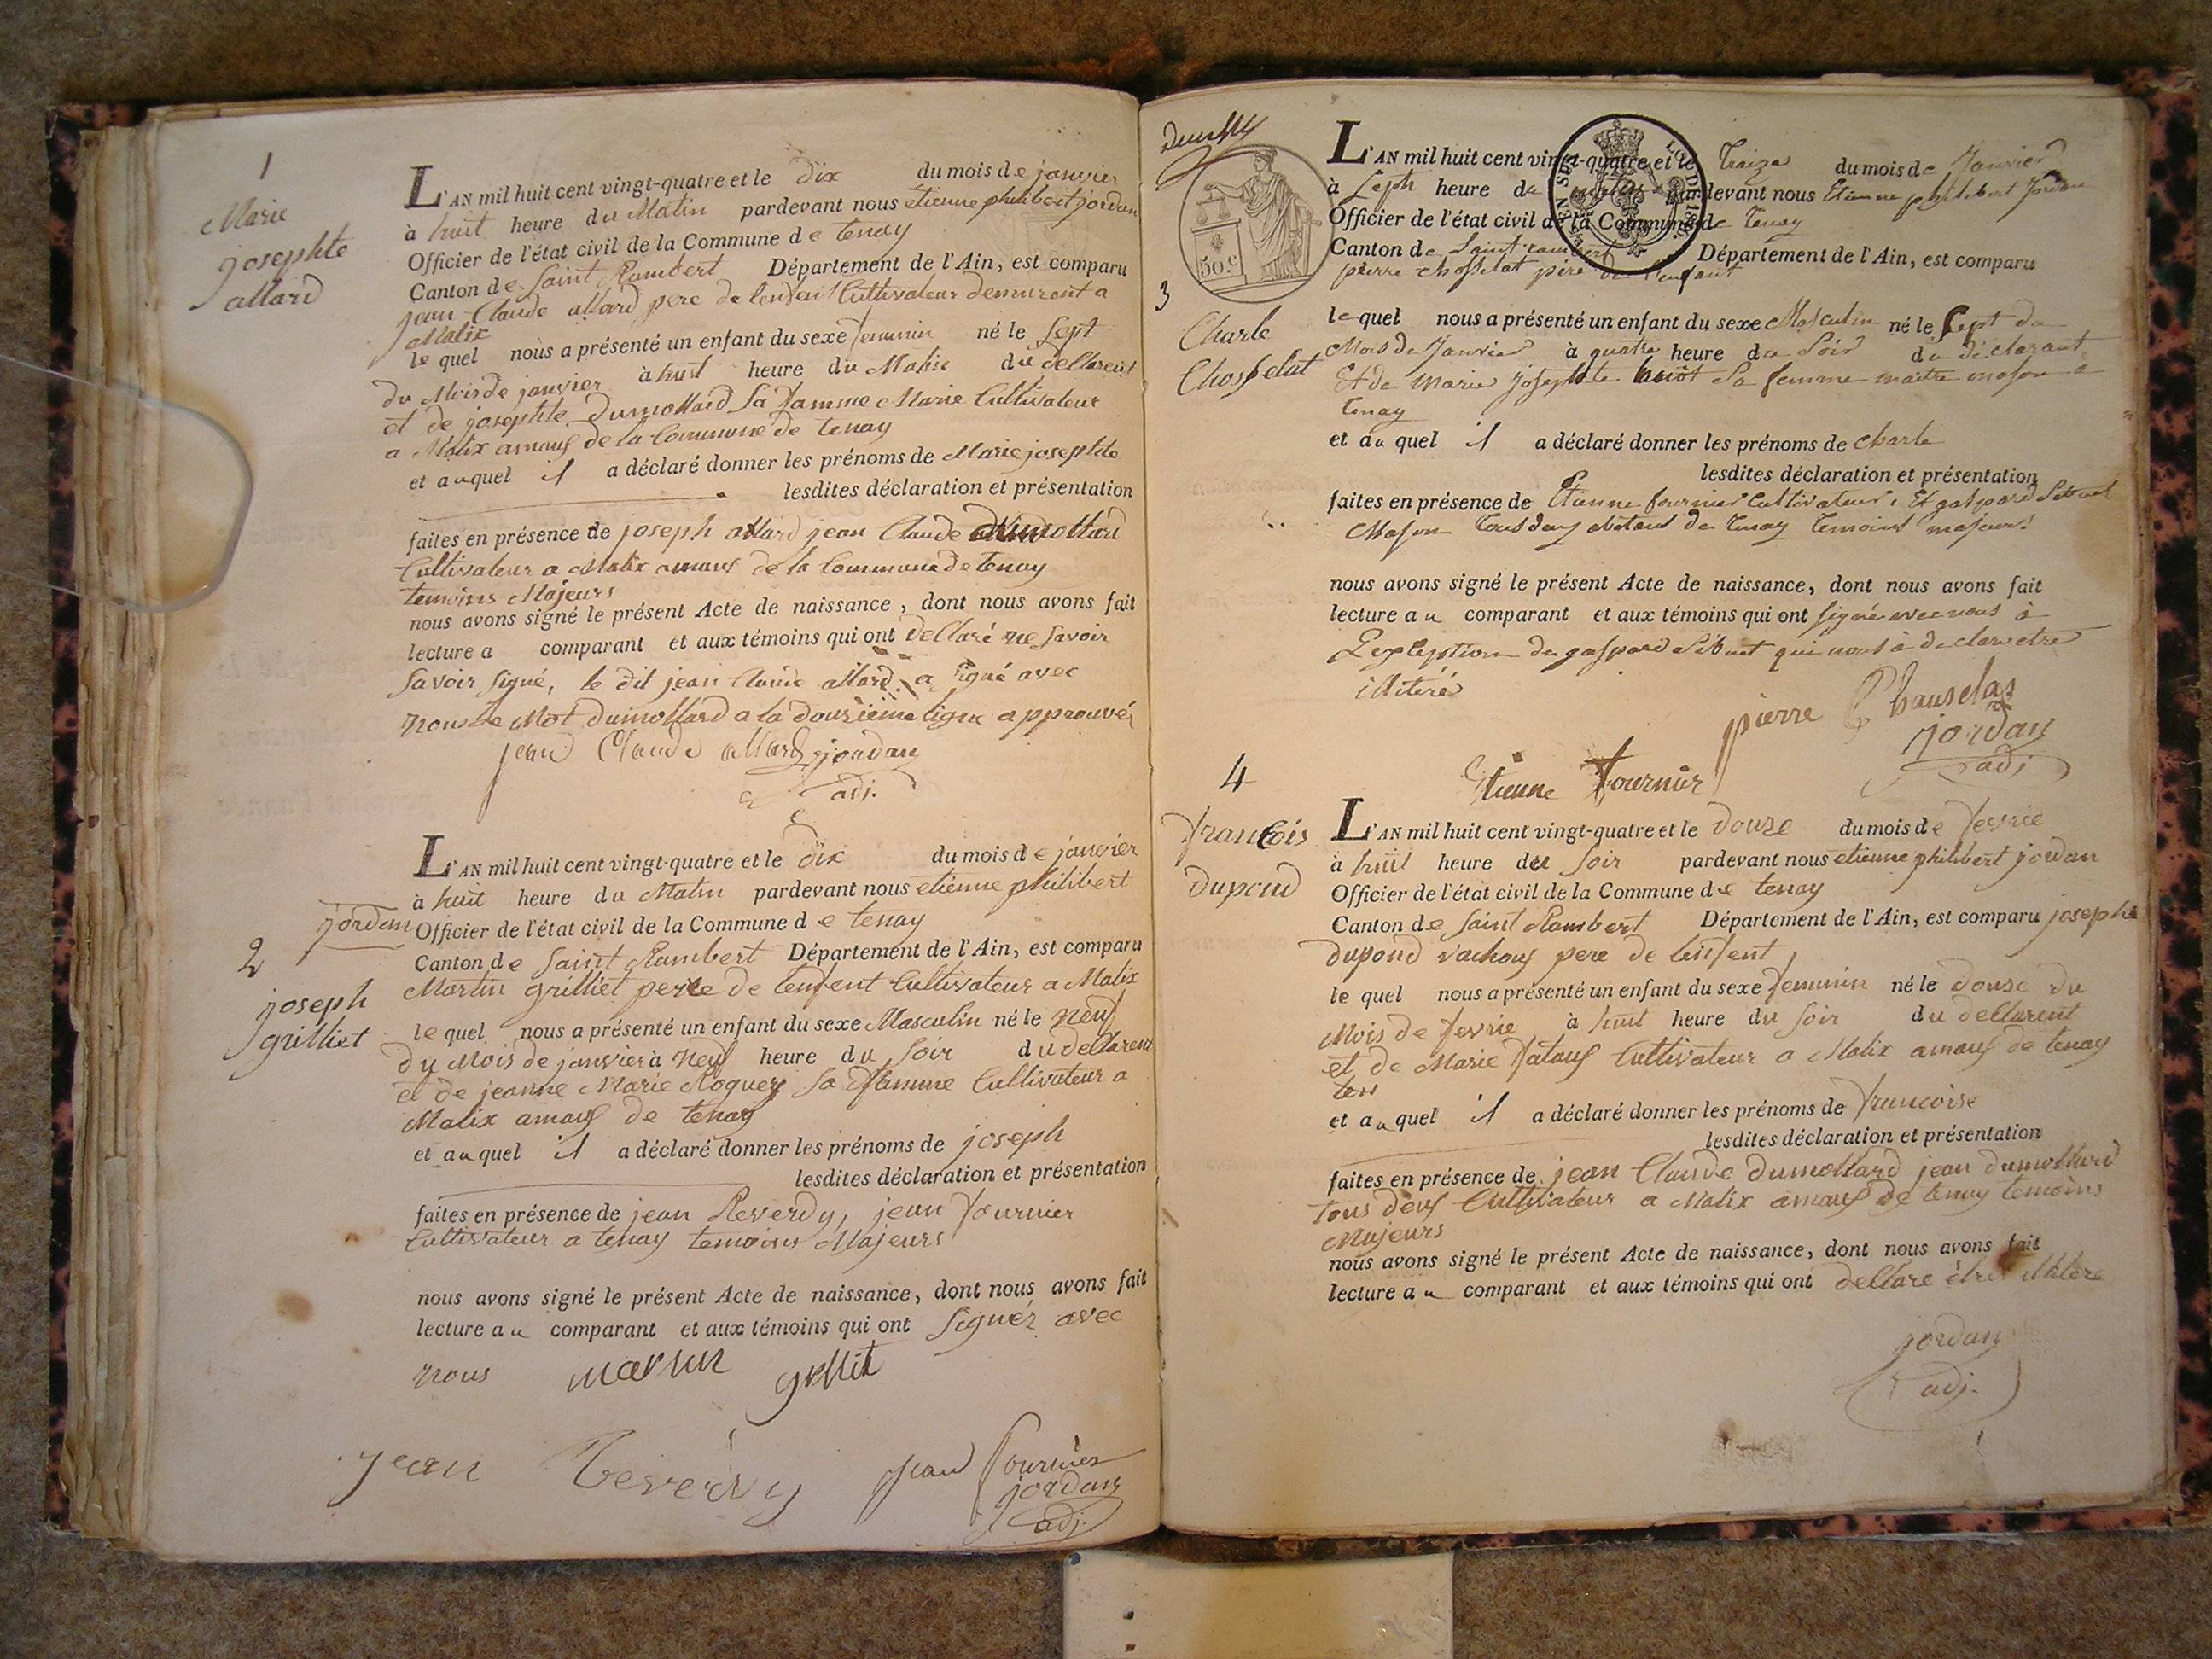 1
Marie
josephte
allard
L'AN mil huit cent vingt-quatre et le dix du mois de janvier
à huit heure du Matin pardevant nous étienne philibert jordan
Officier de l'état civil de la Commune de tenay
Canton de Saint Rambert Département de l'Ain, est comparu
jean Claude allard pere de lenfent Cultivateur demurent a
Malix
le quel nous a présenté un enfant du sexe feminin né le Sept
du Mois de janvier à huit heure du Matin du dellarent
et de josephte Dumollard Sa famme Marie Cultivateur
a Malix amauf de la Commune de tenay
et auquel il a déclaré donner les prénoms de Marie josephte
lesdites déclaration et présentation
faites en présence de joseph allard jean Claude dumollard
Cultivateur a Malix amauf de la Commune de tenay
temoins Majeurs
nous avons signé le présent Acte de naissance, dont nous avons fait
lecture a comparant et aux témoins qui ont dellaré ne savoir
Savoir signé, le dit jean Claude allard a signé avec
nous le Mot Dumollard a la douzieime ligne approuvéz
jean Claude allard jordan
adj.
L'AN mil huit cent vingt-quatre et le dix du mois de janvier
à huit heure du Matin pardevant nous etienne philibert
jordan Officier de l'état civil de la Commune de tenay
2
joseph
grilliet
Canton de Saint Rambert Département de l'Ain, est comparu
Martin grilliet pere de lenfent Cultivateur a Malix
le quel nous a présenté un enfant du sexe Masculin né le neuf
du Mois de janvier à neuf heure du Soir du dellarent
et de jeanne Marie Roguey sa famme Cultivateur a
Malix amauf de tenay
et au quel il a déclaré donner les prénoms de joseph
lesdites déclaration et présentation
faites en présence de jean Reverdy, jean fournier
Cultivateur a tenay temoins Majeurs
nous avons signé le présent Acte de naissance, dont nous avons fait
lecture au comparant et aux témoins qui ont Signéz avec
nous martin grilliet
jean Reverdy jean fournier
jordan
adj.
50.c
3
Charle
Chosselat
L'AN mil huit cent vingt-quatre et le Traize du mois de Janvier
à Septh heure de pardevant nous Etienne philibert Jordan
Officier de l'état civil de la Commune de Tenay
Canton de Saint rambert Département de l'Ain, est comparu
pierre chosselat père de l'enfant
le quel nous a présenté un enfant du sexe Masculin né le Sept du
Mois de Janvier à quatre heure du Soir du déclarant
Et de Marie Josephte sa femme maitre mason a
Tenay
et au quel il a déclaré donner les prénoms de Charle
lesdites déclaration et présentation
faites en présence de Etienne fournier Cultivateur, Et gaspard Sibuet
Mason tous deux abitant de Tenay Temoins majeurs
nous avons signé le présent Acte de naissance, dont nous avons fait
lecture au comparant et aux témoins qui ont signé avec nous à
L'exseption de gaspard Sibuet qui nous à declare etre
illiteré
pierre Chauselas
jordan
Etienne fournier adj
4
francois
dupond
L'AN mil huit cent vingt-quatre et le douze du mois de fevrie
à huit heure du soir pardevant nous etienne philibert jordan
Officier de l'état civil de la Commune de tenay
Canton de Saint Rambert Département de l'Ain, est comparu joseph
dupond vachouf pere de lenfent
le quel nous a présenté un enfant du sexe feminin né le douse du
Mois de fevrie à huit heure du soir du dellarent
et de Marie Cultivateur a Malix amauf de tenay
ten
et au quel il a déclaré donner les prénoms de francoise
lesdites déclaration et présentation
faites en présence de jean Claude dumollard jean dumollard
tous deuf Cultivateur a Malix amauf de tenay temoins
Majeurs
nous avons signé le présent Acte de naissance, dont nous avons fait
lecture au comparant et aux témoins qui ont dellare étre illitere
jordan
adj.